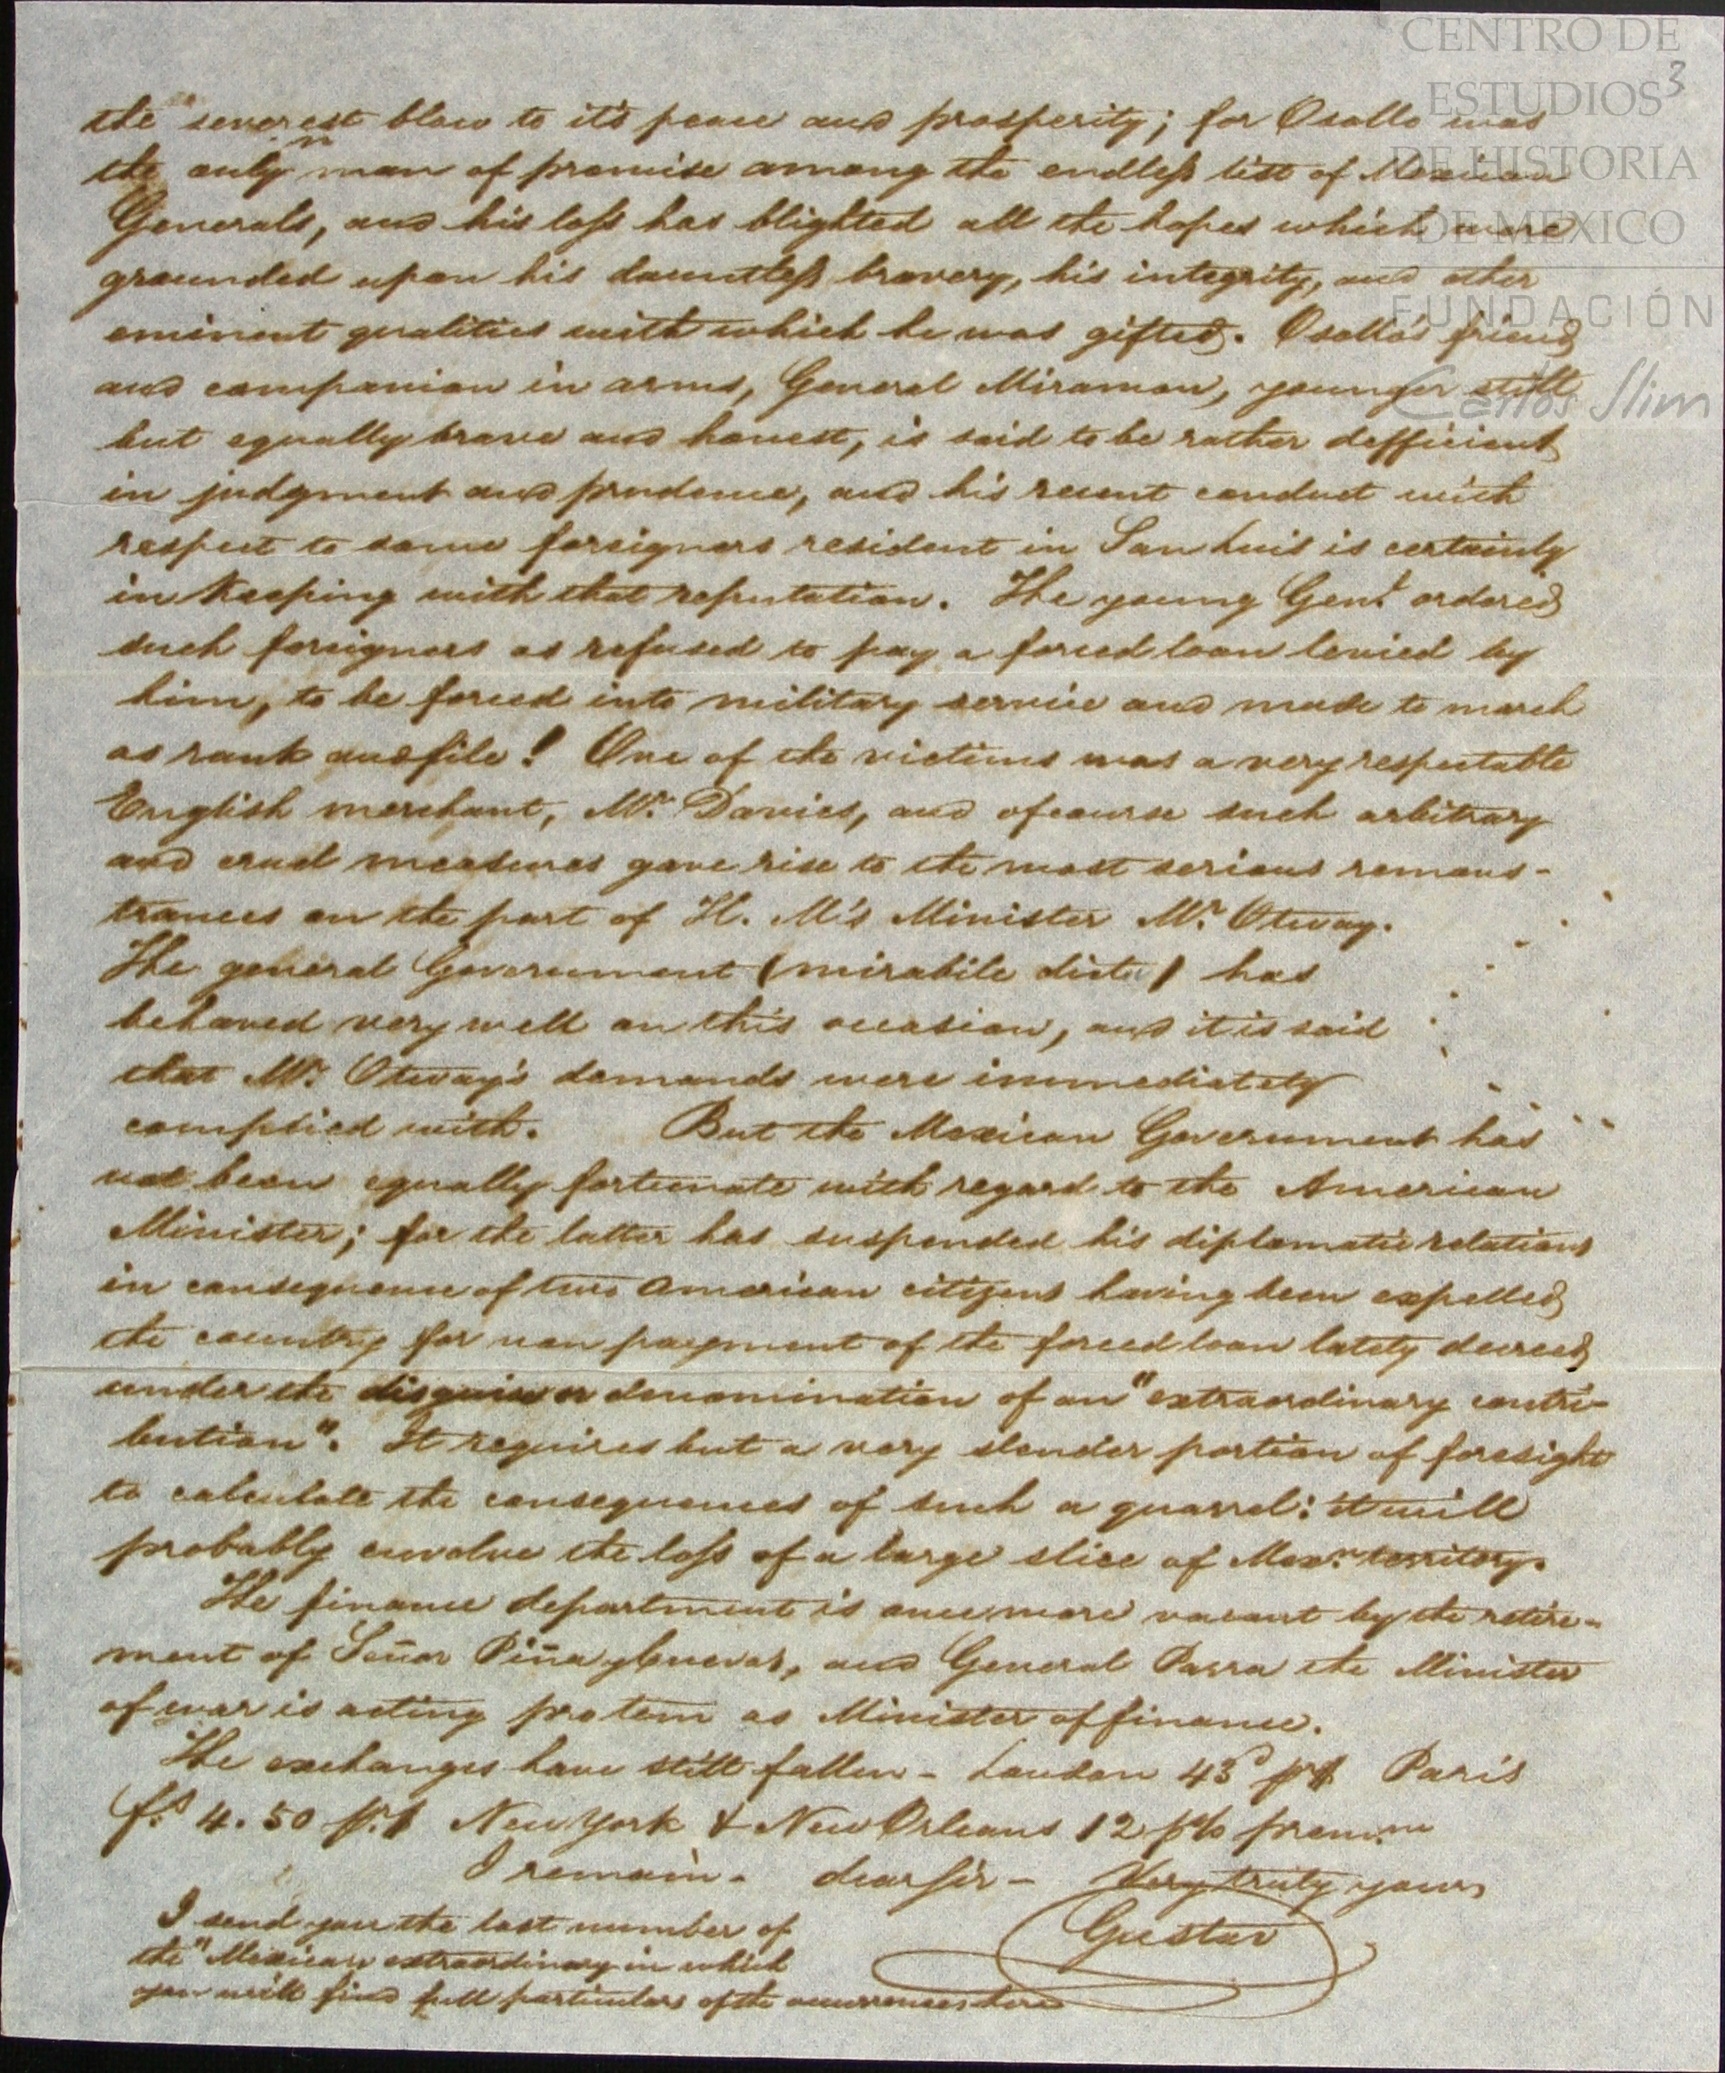 CENTRO DE
ESTUDIOS
DE HISTORIA
DE MEXICO
FUNDACIÓN
Carlos Slim
3
the severest blow to it's peace and prosperity; for Osollo was
the only man of promise among the endless list of Mexican
Generals, and his loss has blighted all the hopes which were
grounded upon his dauntless bravery, his integrity, and other
eminent qualities with which he was gifted. Osollo's friend
and companion in arms, General Miramon, younger still
but equally brave and honest, is said to be rather defficient
in judgment and prudence, and his recent conduct with
respect to some foreigners resident in San Luis is certainly
in keeping with that reputation. The young Genl. ordered
such foreigners as refused to pay a forced loan levied by
him, to be forced into military service and made to march
as rank and file! One of the victims was a very respectable
English merchant, Mr. Davies, and of course such arbitrary
and cruel measures gave rise to the most serious remons-
trances on the part of H. M's Minister Mr. Otway.
The general Government (mirabile dictu) has
behaved very well on this occasion, and it is said
that Mr. Otway's demands were immediately
complied with. But the Mexican Government has
not been equally fortunate with regard to the American
Minister; for the latter has suspended his diplomatic relations
in consequence of two American citizens having been expelled
the country for non payment of the forced loan lately decreed
under the disguise or denomination of an "extraordinary contri-
bution". It requires but a very slender portion of foresight
to calculate the consequences of such a quarrel: it will
probably involve the loss of a large slice of Mexn. territory.
The finance department is once more vacant by the retire-
ment of Señor Piña y Cuevas, and General Parra the Minister
of war is acting pro tem as Minister of finance.
The exchanges have still fallen - London 43d pr $ Paris
fs. 4.50 pr. $ New York & New Orleans 12 p% premm
I remain - dear Sir - Very truly yours
Gustav
I send you the last number of
the "Mexican extraordinary in which
you will find full particulars of the occurrences here